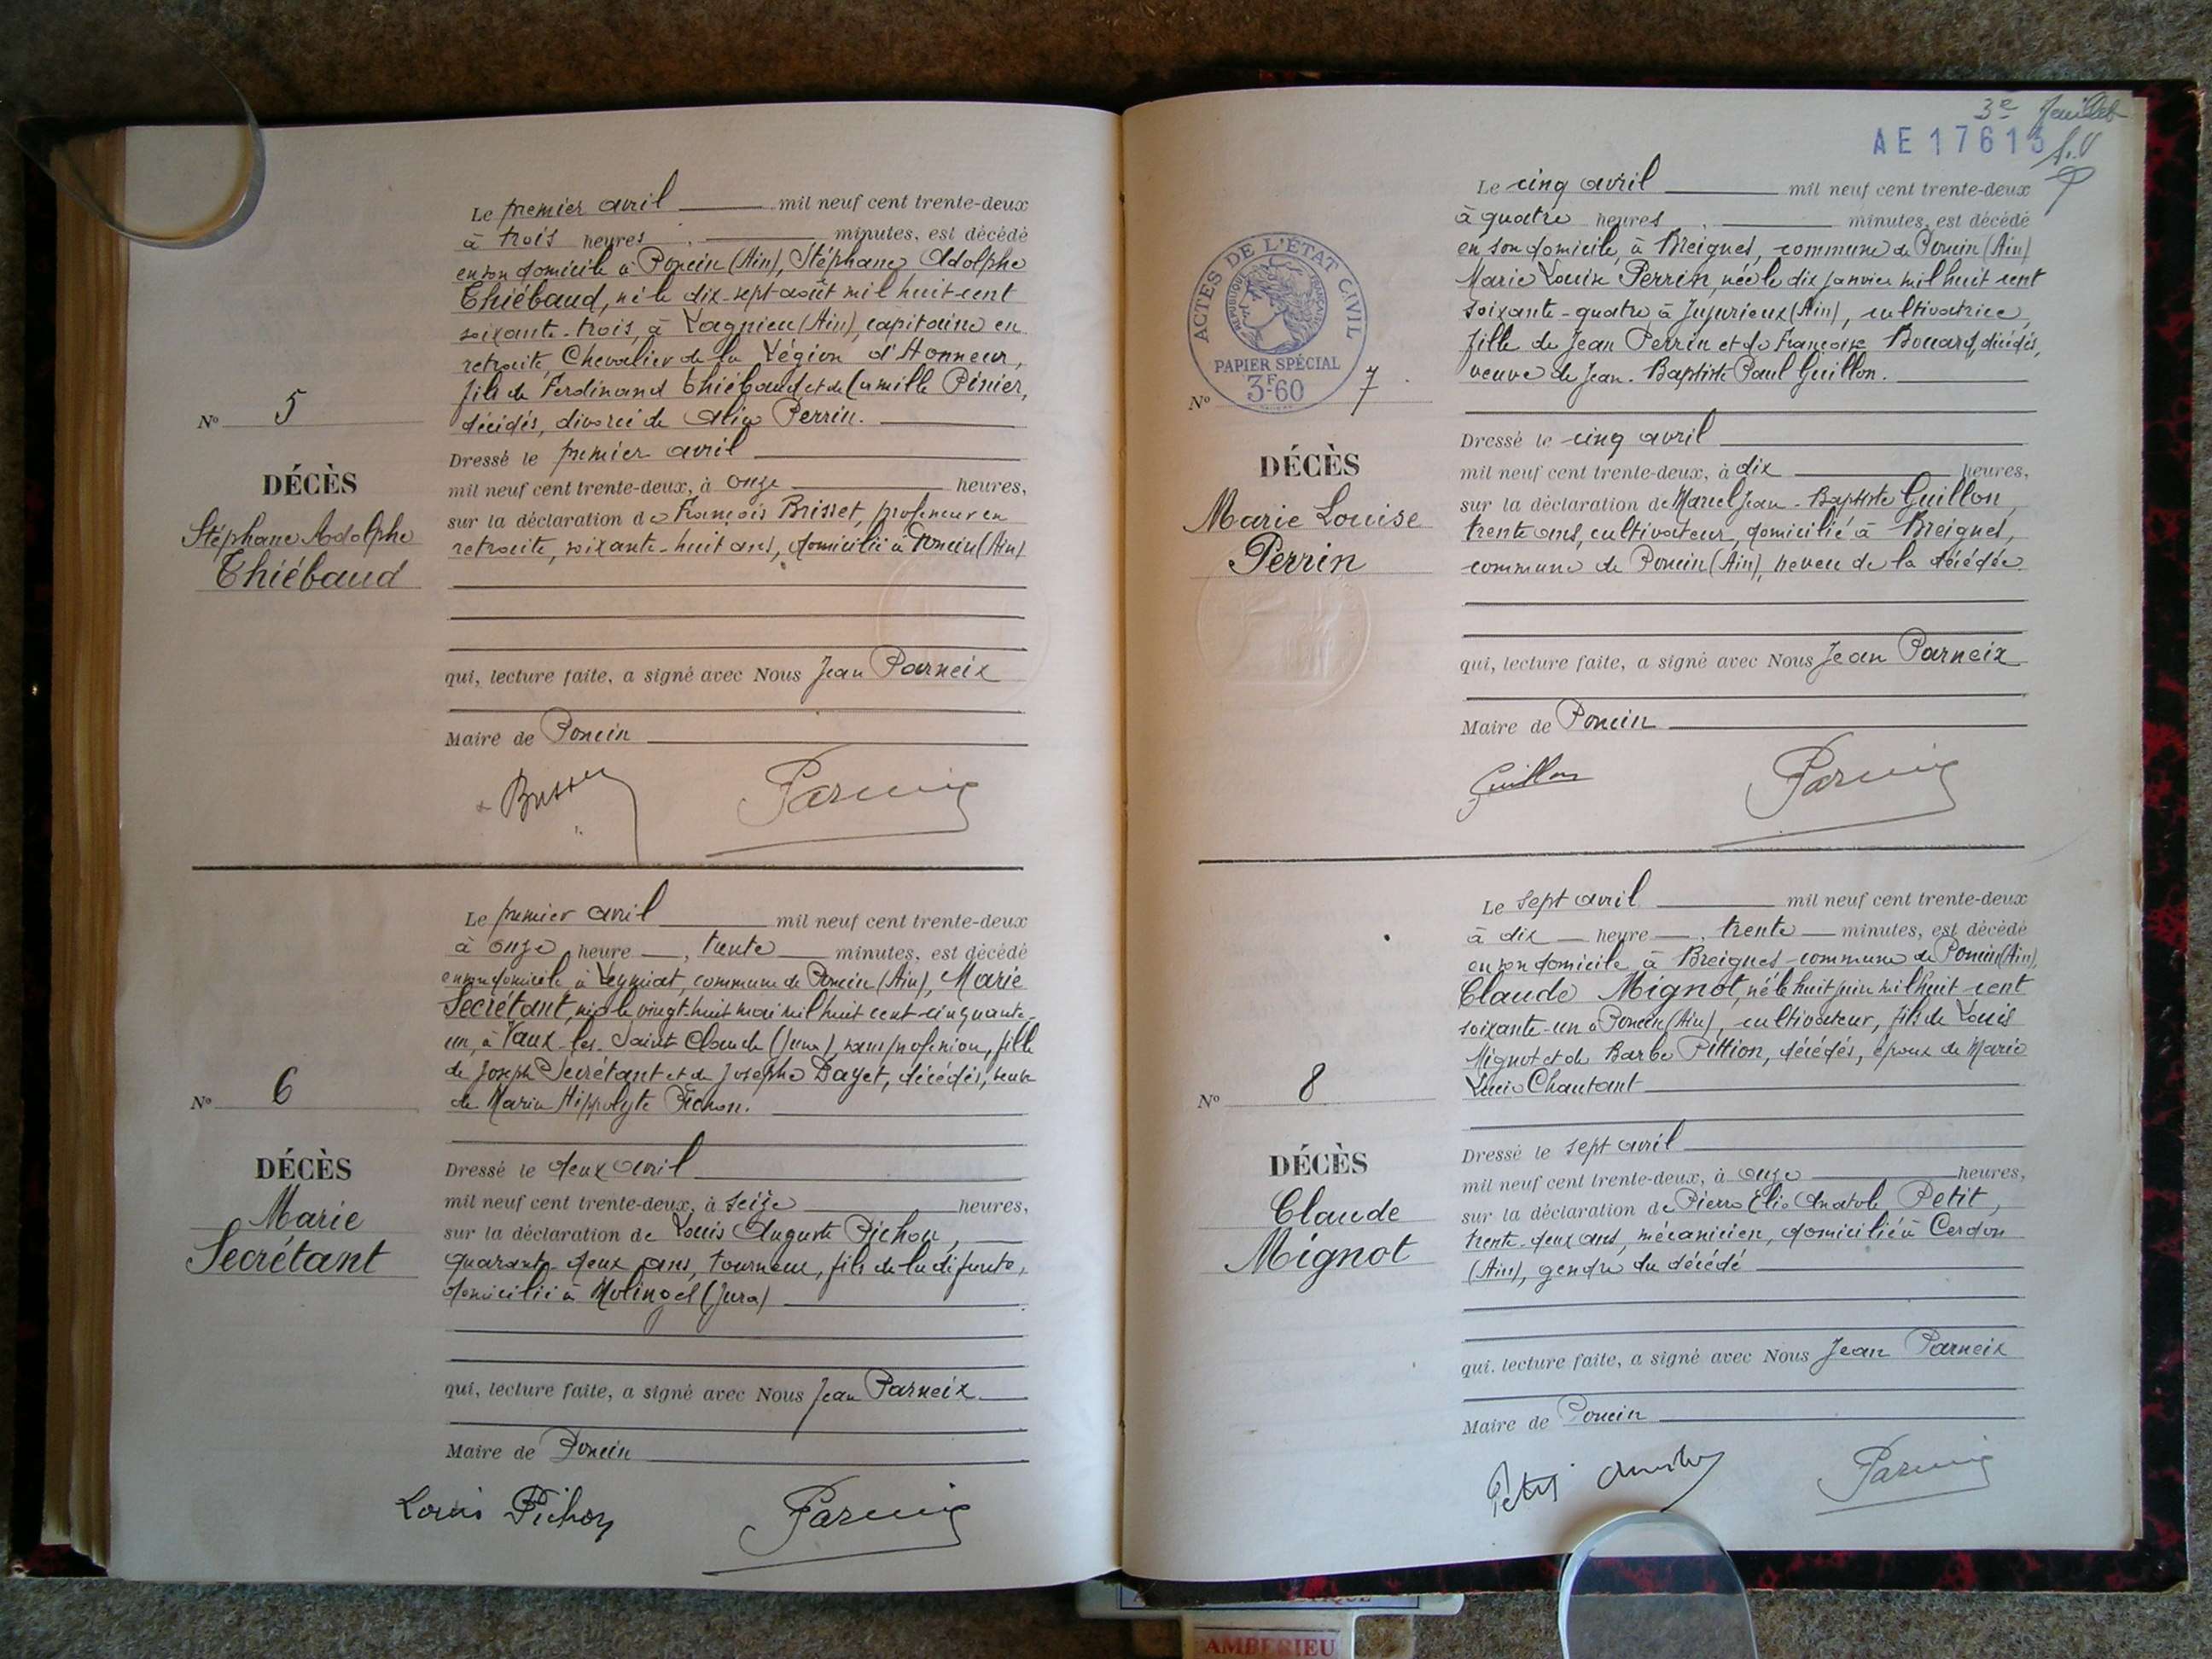 Le premier avril mil neuf cent trente-deux
à trois heures, minutes, est décédé
en son domicile à Poncin (Ain), Stéphane, Adolphe
Thiébaud, né le dix-sept août mil huit cent
soixante-trois, à Lagnieu (Ain), capitaine en
retraite, Chevalier de la Légion d'Honneur,
fils de Ferdinand Thiébaud et de Camille Pinier,
décédés, divorcé de Perrin.
Nº 5
DÉCÈS
Stéphane Adolphe
Thiébaud
Dressé le premier avril
mil neuf cent trente-deux, à onze heures,
sur la déclaration de François Brisset, professeur en
retraite, soixante-huit ans, domicilié à Poncin (Ain)
qui, lecture faite, a signé avec Nous Jean Parneix
Maire de Poncin
Parneix
Le premier avril mil neuf cent trente-deux
à onze heure, trente minutes, est décédé
en son domicile à Leymiat, commune de Poncin (Ain), Marie
Secrétant, née le vingt-huit mai mil huit cent cinquante-
un, à Vaux-les-Saint Claude (Jura), sans profession, fille
de Joseph Secrétant et de Josephe Dayet, décédés, veuve
de Marie Hippolyte Pichon.
Nº 6
DÉCÈS
Marie
Secrétant
Dressé le deux avril
mil neuf cent trente-deux, à seize heures,
sur la déclaration de Louis Auguste Pichon,
quarante-deux ans, tourneur, fils de la défunte,
domicilié à Molinges (Jura)
qui, lecture faite, a signé avec Nous Jean Parneix
Maire de Poncin
Louis Pichon Parneix
3e feuillet
AE17613
ACTES DE L'ÉTAT CIVIL
RÉPUBLIQUE FRANÇAISE
PAPIER SPÉCIAL
3F60
Le cinq avril mil neuf cent trente-deux
à quatre heures, minutes, est décédé
en son domicile, à Breignes, commune de Poncin (Ain)
Marie Louise Perrin, née le dix janvier mil huit cent
soixante-quatre à Jujurieux (Ain), cultivatrice,
fille de Jean Perrin et de Françoise Bouard, décédés,
veuve de Jean-Baptiste Paul Guillon.
Nº 7
DÉCÈS
Marie Louise
Perrin
Dressé le cinq avril
mil neuf cent trente-deux, à dix heures,
sur la déclaration de Marcel Jean-Baptiste Guillon,
trente ans, cultivateur, domicilié à Breignes,
commune de Poncin (Ain), neveu de la décédée
qui, lecture faite, a signé avec Nous Jean Parneix
Maire de Poncin
Guillon Parneix
Le sept avril mil neuf cent trente-deux
à dix heure, trente minutes, est décédé
en son domicile à Breignes commune de Poncin (Ain),
Claude Mignot, né le huit juin mil huit cent
soixante-un à Poncin (Ain), cultivateur, fils de Louis
Mignot et de Barbe Pittion, décédés, époux de Marie
Chautant
Nº 8
DÉCÈS
Claude
Mignot
Dressé le sept avril
mil neuf cent trente-deux, à onze heures,
sur la déclaration de Pierre Élie Anatole Petit,
trente-deux ans, mécanicien, domicilié à Cerdon
(Ain), gendre du décédé
qui, lecture faite, a signé avec Nous Jean Parneix
Maire de Poncin
Petit Parneix
AMBERIEU